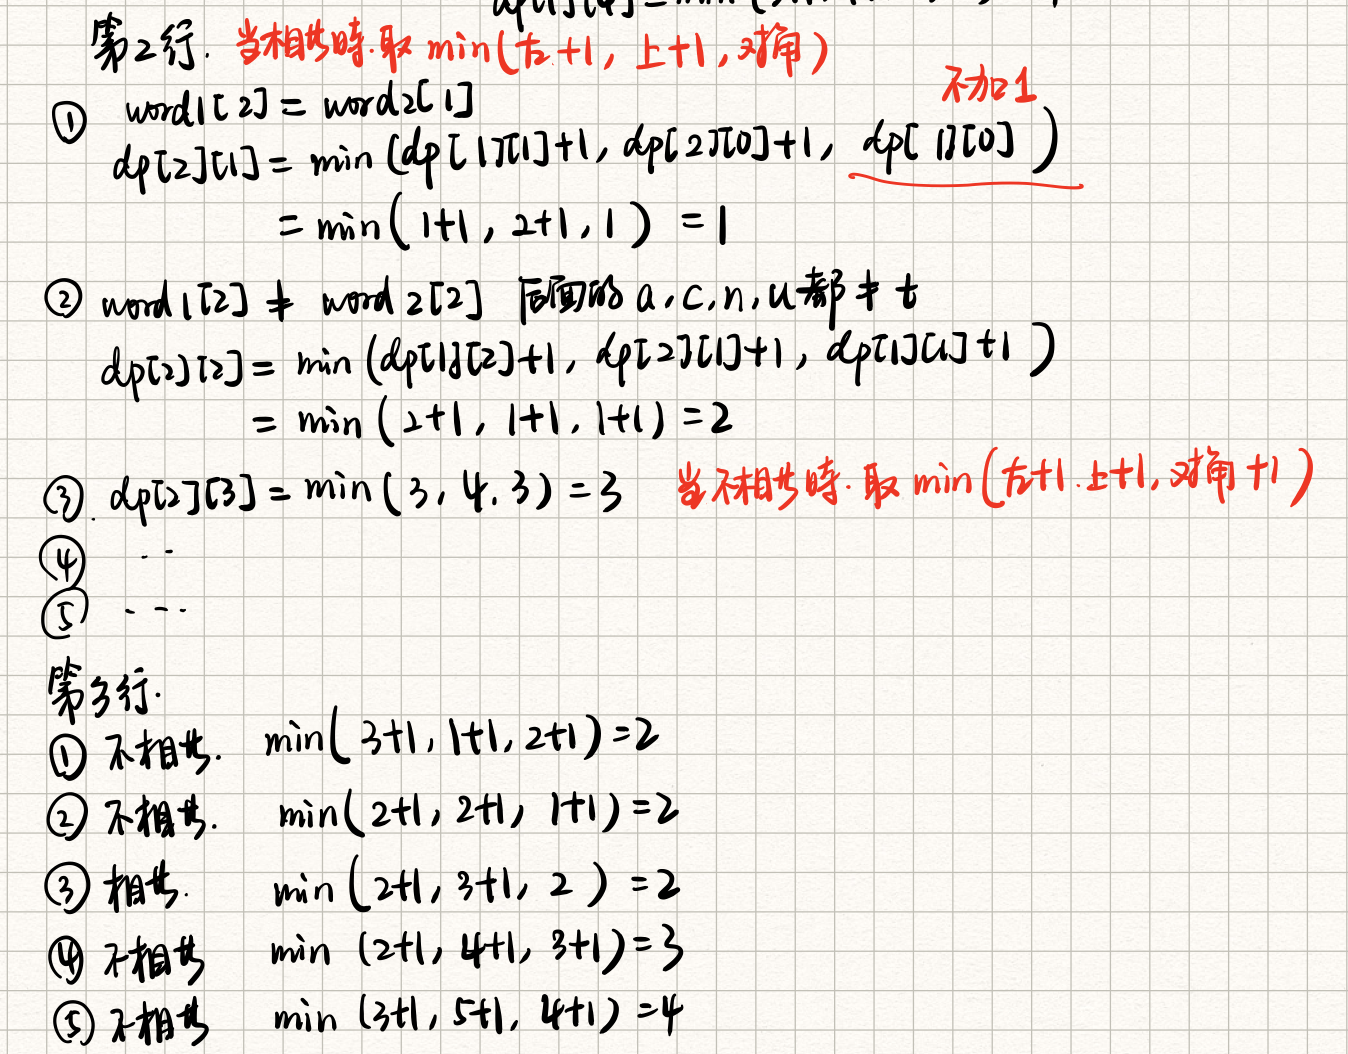 第2行. 当相女時.取 min(左+1, 上+1, 对角)
不加1
① word1[2] = word2[1]
dp[2][1] = min (dp[1][1]+1, dp[2][0]+1, dp[1][0])
= min( 1+1, 2+1, 1 ) = 1
② word1[2] ≠ word2[2] 后面的 a, c, n, u都≠ t
dp[2][2] = min (dp[1][2]+1, dp[2][1]+1, dp[1][1]+1)
= min (2+1, 1+1, 1+1) = 2
③. dp[2][3] = min(3, 4, 3) = 3 当不相女時.取 min(左+1.上+1,对角+1)
④ --
⑤ ---
第3行.
① 不相女. min( 3+1, 1+1, 2+1) = 2
② 不相女. min(2+1, 2+1, 1+1) = 2
③ 相女. min (2+1, 3+1, 2 ) = 2
④ 不相女 min (2+1, 4+1, 3+1) = 3
⑤ 不相女 min (3+1, 5+1, 4+1) = 4